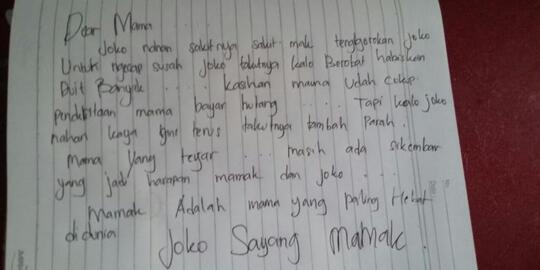 Dear Mama
Joko nahan sakitnya sakit mak tenggorokan Joko
Untuk ngecap susah Joko takutnya kalo Berobat habiskan
Duit Banyak . . . . kasihan mama Udah cukup
penderitaan mama bayar hutang . . . . Tapi kalo joko
nahan kaya gini terus takutnya tambah Parah .
Mama yang tegar . . . masih ada sikembar
yang jadi harapan mamak dan joko . . .
Mamak Adalah mama yang paling Hebat
didunia
Joko Sayang Mamak .